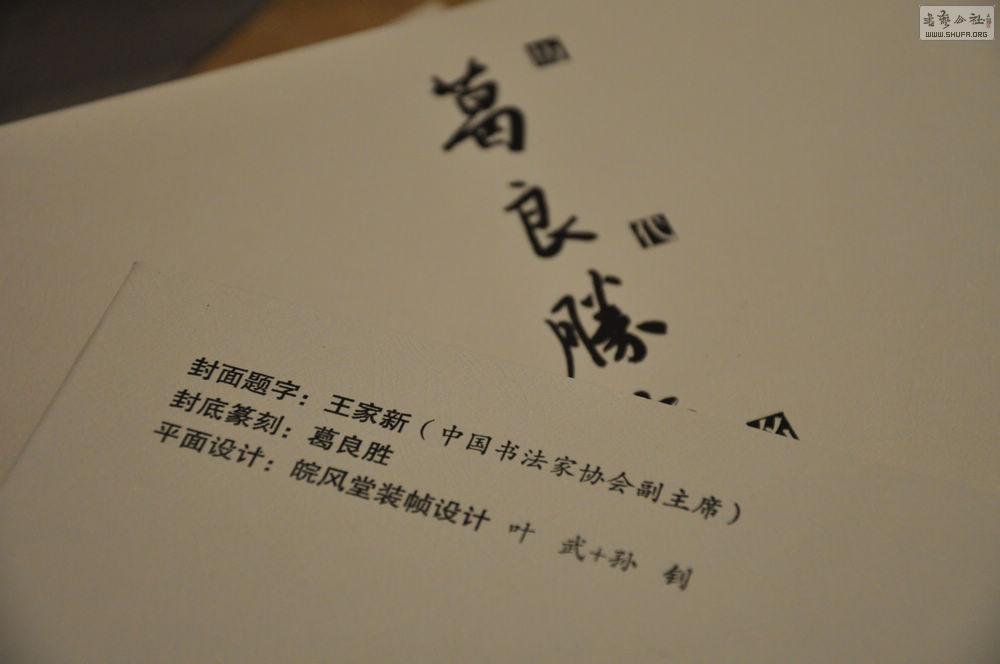 書藝公社
WWW.SHUFA.ORG
葛
良
勝
封面题字：王家新（中国书法家协会副主席）
封底篆刻：葛良胜
平面设计：皖风堂装帧设计 叶 武+孙 钊